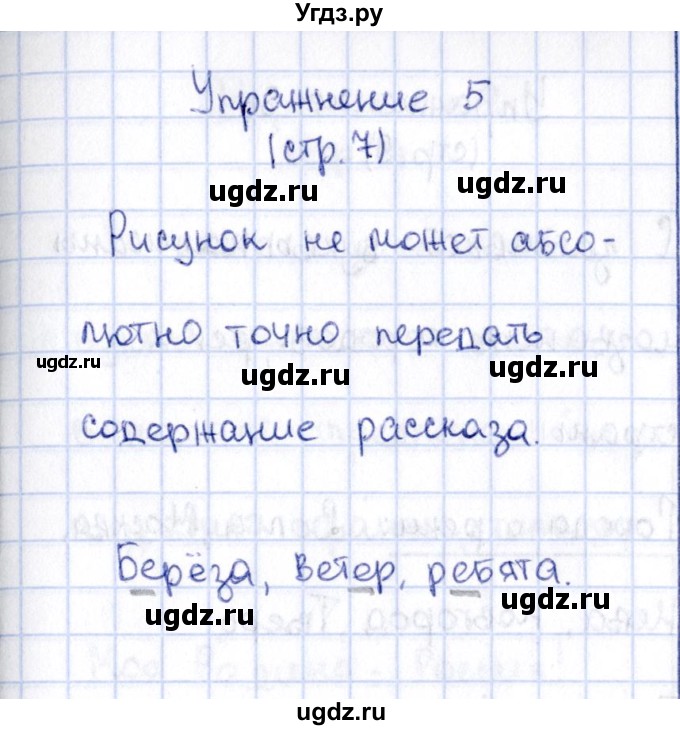 Угдз.ру
Упражнение 5
(стр. 7)
ugdz.ru
ugdz.ru
Рисунок не может абсо-
лютно точно передать
ugdz.ru
ugdz.ru
ugdz.ru
содержание рассказа.
ugdz.ru
ugdz.ru
Берёза, ветер, ребята.
ugdz.ru
ugdz.ru
ugdz.ru